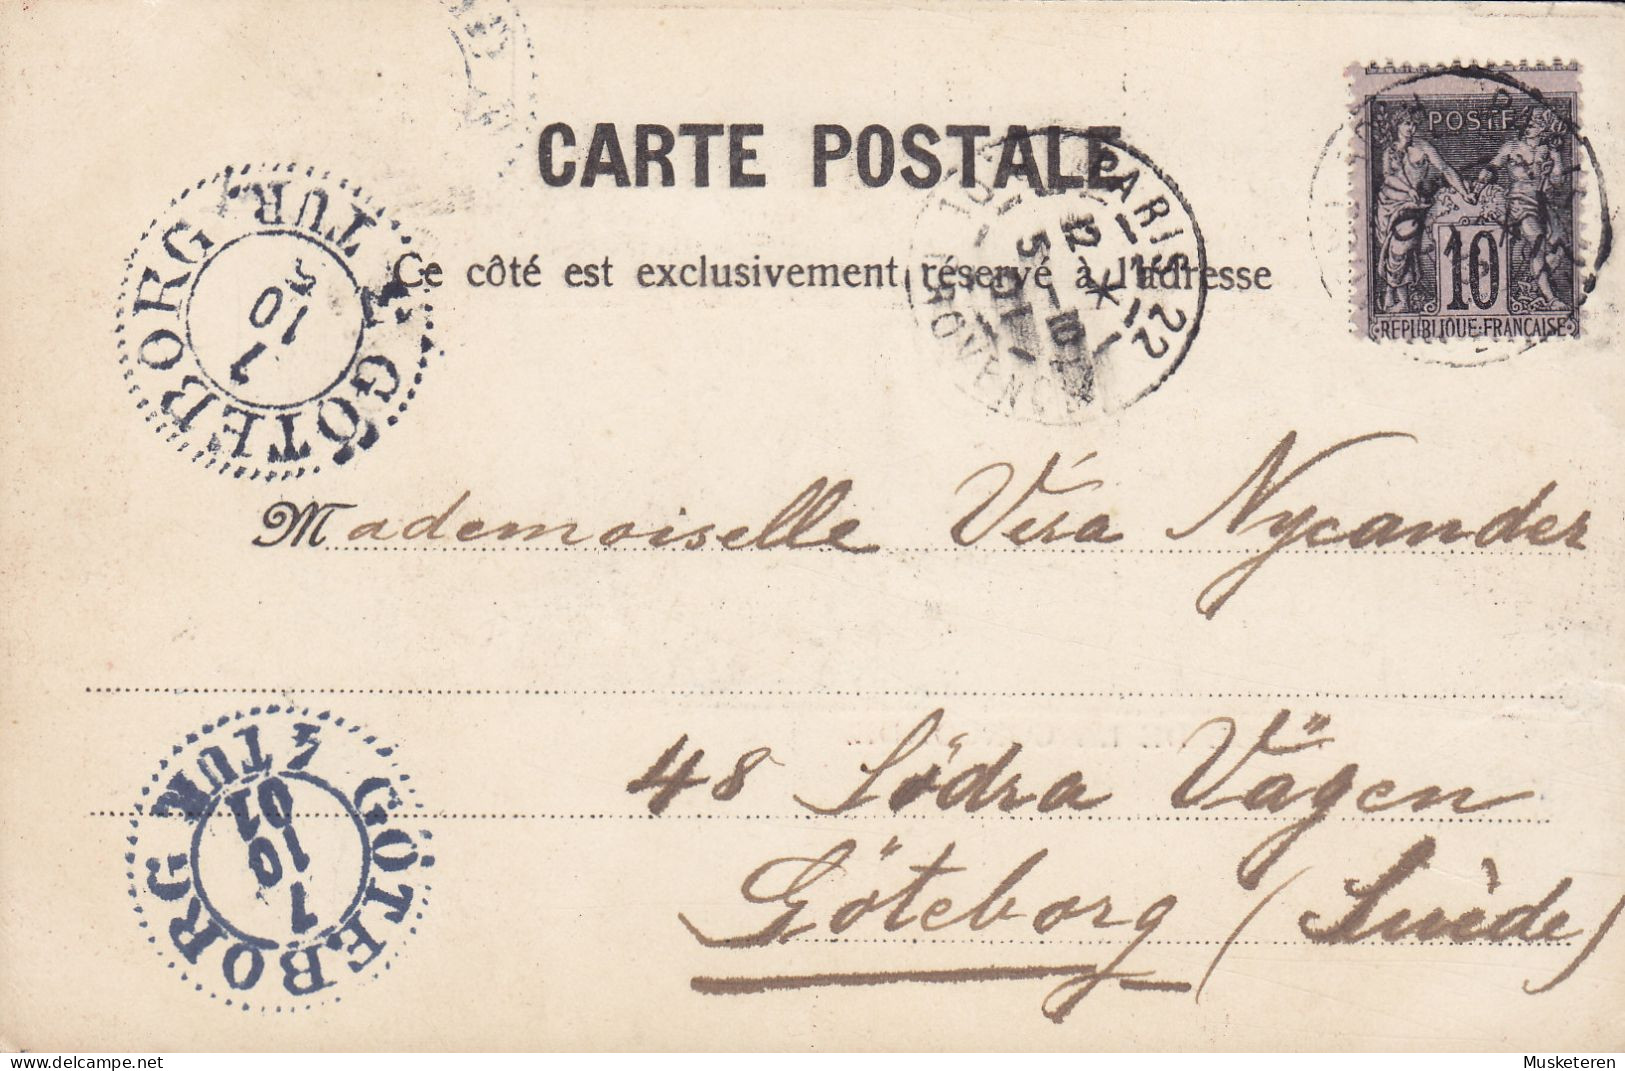 CARTE POSTALE
Ce côté est exclusivement réservé à l'adresse
POSTE
10
REPUBLIQUE FRANÇAISE
PARIS 22
GÖTEBORG
TUR
1
10
Mademoiselle Véra Nycander
48 Södra Vägen
Göteborg (Suède)
GÖTEBORG
4 TUR
1
10
01
www.delcampe.net
Musketeren